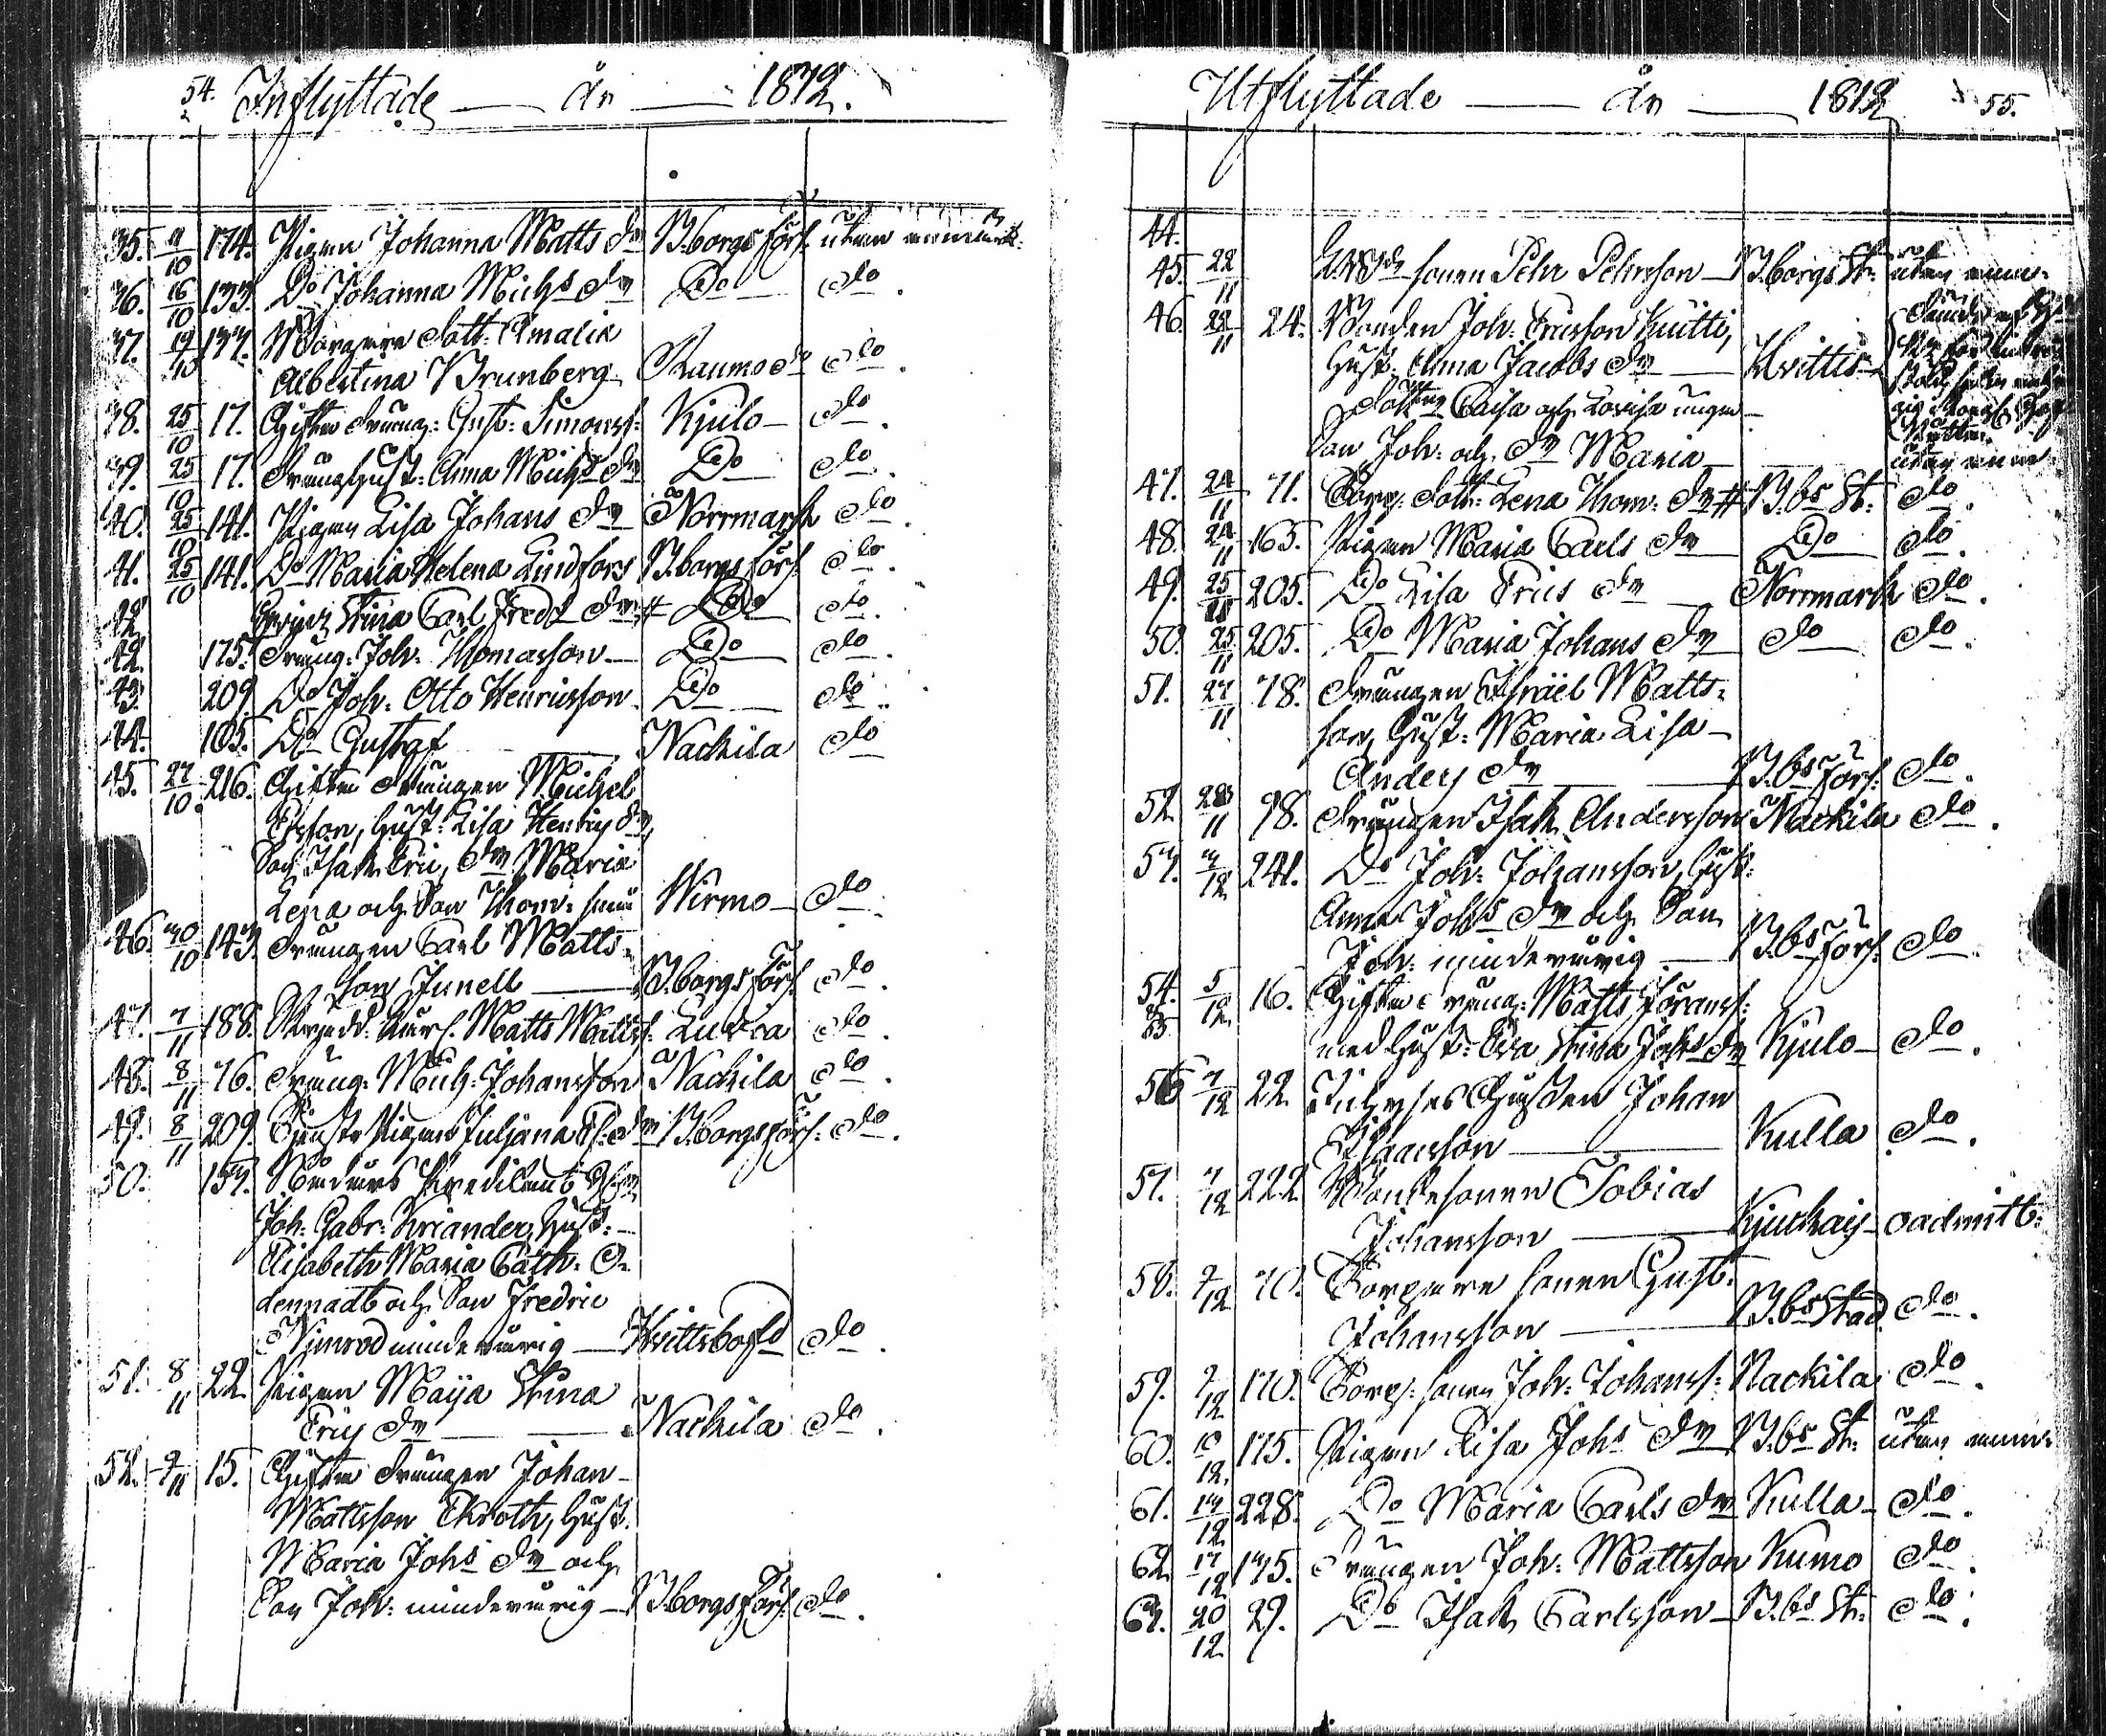 54. Inflyttade — år — 1812.
35. 9/10 174. Pigan Johanna Matts dr B:borgs förs. utan anmärk:
36. 16/10 133. Do Johanna Michs dr Do do.
37. 19/10 137. Torpare dott: Amalia
Albertina Brunberg Raumo do.
38. 25/10 17. Gifte dräng: Gust: Simonss: Kjulo — do.
39. 25/10 17. dräng Hust: Anna Michs dr Do do.
40. 25/10 141. Pigan Lisa Johans dr Norrmark do.
41. 25/10 141. Do Maria Helena Lindfors B:borgs förs. do.
42. Stina Carl Fredr dr # Do do.
42. 175. dräng: Joh: Thomasson — Do do.
43. 209. Do Joh: Otto Henricsson Do do.
44. 105. Do Gustaf — Nackila do
45. 27/10 216. Gifte drängen Michel
Ersson, Hust: Lisa Henrics dr,
Son Isak Eric, dr Maria
Lena och Son Thom: Wirmo — do.
46. 30/10 143. drängen Carl Matts-
son Junell — B:borgs förs. do.
47. 7/11 188. Matts Matts: do.
48. 8/11 76. dräng: Mich: Johansson Nackila do.
49. 8/11 209. Pigan Juljana dr B:borgs förs: do.
50. 157.
Joh: Gabr: Kriander, Hust: —
Elisabeth Maria Cath: O-
dennadt och Son Fredric
Nimrod minderårig — do.
51. 8/11 22. Pigan Maja Stina
Erics dr — Nackila do.
52. 9/11 15. Gifte drängen Johan
Mattsson Ekroth, Hust:
Maria Johs dr och
Son Joh: minderårig — B:borgs förs: do.
Utflyttade — år — 1812 55.
44.
45. 22/11 sonen Pehr Pehrsson — B:borgs St: utan anm:
46. 22/11 24. Bonden Joh: Ericsson Knitti,
Hust: Anna Jacobs dr — Hvittis
Caisa och Lovisa
Son Joh: och dr Maria utan anm:
47. 24/11 71. Torp: dott: Lena Thom: dr # B:bs St: do.
48. 24/11 165. Pigan Maria Carls dr Do do.
49. 25/11 205. Do Lisa Erics dr Norrmark do.
50. 25/11 205. Do Maria Johans dr do do.
51. 27/11 78. drängen Israel Matts-
son, Hust: Maria Lisa
Anders dr — B:bs förs: do.
52. 28/11 98. drängen Isak Andersson Nackila do.
53. 3/12 241. Do Joh: Johansson, Hust:
Anna Johs dr och Son
Joh: minderårig — B:bs förs: do.
54. & 55 5/12 16. Gifte dräng: Matts Göranss:
med Hust: Eva Stina Johs dr Kjulo — do.
56 7/12 22. Gossen Johan
Isaacsson — Kulla do.
57. 7/12 222. Bondesonen Tobias
Johansson — oadmitt:
58. 9/12 70. Torpare sonen Gust:
Johansson — B:bs Stad do.
59. 9/12 170. Torp: sonen Joh: Johanss: Nackila do.
60. 10/12 175. Pigan Lisa Johs dr B:bs St: utan anm:
61. 13/12 228. Do Maria Carls dr Kulla — do.
62. 17/12 175. Drängen Joh: Mattsson Kumo do.
63. 20/12 29. Do Isak Carlsson — B:bs St: do.